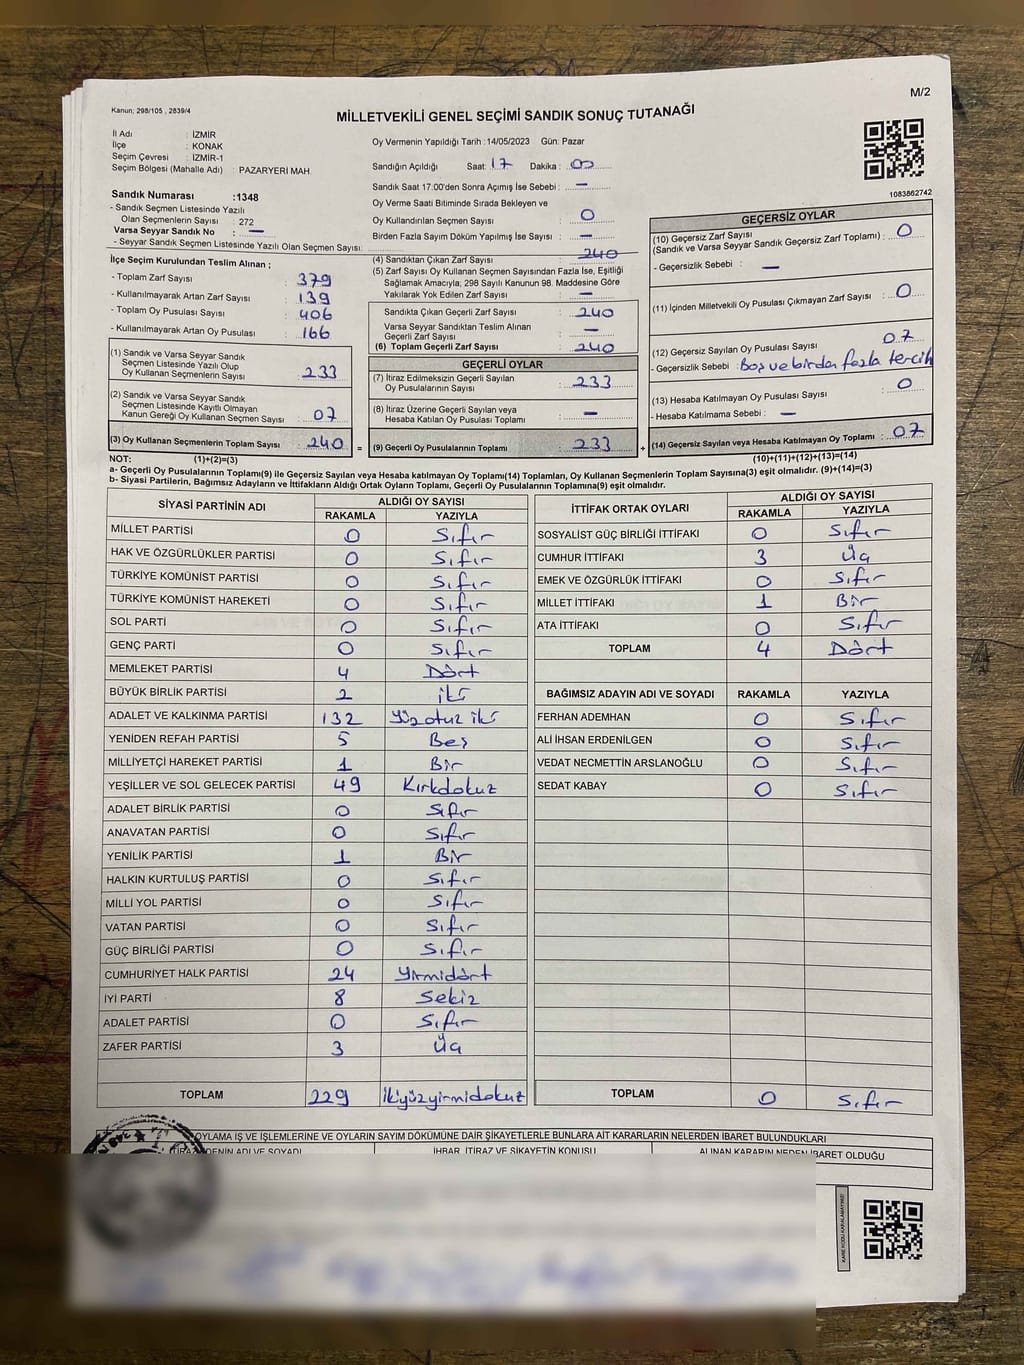 M/2
Kanun; 298/105 , 2839/4
MİLLETVEKİLİ GENEL SEÇİMİ SANDIK SONUÇ TUTANAĞI
İl Adı : İZMİR
İlçe : KONAK
Seçim Çevresi : İZMİR-1
Seçim Bölgesi (Mahalle Adı) : PAZARYERİ MAH.
Oy Vermenin Yapıldığı Tarih : 14/05/2023 Gün: Pazar
Sandığın Açıldığı Saat: 17 Dakika : 00
Sandık Saat 17:00'den Sonra Açımış İse Sebebi : —
Oy Verme Saati Bitiminde Sırada Bekleyen ve
Oy Kullandırılan Seçmen Sayısı : 0
Birden Fazla Sayım Döküm Yapılmış İse Sayısı : —
1083862742
Sandık Numarası :1348
- Sandık Seçmen Listesinde Yazılı
Olan Seçmenlerin Sayısı : 272
Varsa Seyyar Sandık No : —
- Seyyar Sandık Seçmen Listesinde Yazılı Olan Seçmen Sayısı:
İlçe Seçim Kurulundan Teslim Alınan ;
- Toplam Zarf Sayısı : 379
- Kullanılmayarak Artan Zarf Sayısı : 139
- Toplam Oy Pusulası Sayısı : 406
- Kullanılmayarak Artan Oy Pusulası : 166
(1) Sandık ve Varsa Seyyar Sandık
Seçmen Listesinde Yazılı Olup
Oy Kullanan Seçmenlerin Sayısı : 233
(2) Sandık ve Varsa Seyyar Sandık
Seçmen Listesinde Kayıtlı Olmayan
Kanun Gereği Oy Kullanan Seçmen Sayısı : 07
(3) Oy Kullanan Seçmenlerin Toplam Sayısı : 240
(4) Sandıktan Çıkan Zarf Sayısı : 240
(5) Zarf Sayısı Oy Kullanan Seçmen Sayısından Fazla İse, Eşitliği
Sağlamak Amacıyla; 298 Sayılı Kanunun 98. Maddesine Göre
Yakılarak Yok Edilen Zarf Sayısı : —
Sandıkta Çıkan Geçerli Zarf Sayısı : 240
Varsa Seyyar Sandıktan Teslim Alınan
Geçerli Zarf Sayısı : —
(6) Toplam Geçerli Zarf Sayısı : 240
GEÇERLİ OYLAR
(7) İtiraz Edilmeksizin Geçerli Sayılan
Oy Pusulalarının Sayısı : 233
(8) İtiraz Üzerine Geçerli Sayılan veya
Hesaba Katılan Oy Pusulası Toplamı : —
= (9) Geçerli Oy Pusulalarının Toplamı : 233
GEÇERSİZ OYLAR
(10) Geçersiz Zarf Sayısı
(Sandık ve Varsa Seyyar Sandık Geçersiz Zarf Toplamı) : 0
- Geçersizlik Sebebi : —
(11) İçinden Milletvekili Oy Pusulası Çıkmayan Zarf Sayısı : 0
(12) Geçersiz Sayılan Oy Pusulası Sayısı : 07
- Geçersizlik Sebebi : Boş ve birden fazla tercih
(13) Hesaba Katılmayan Oy Pusulası Sayısı : 0
- Hesaba Katılmama Sebebi : —
+ (14) Geçersiz Sayılan veya Hesaba Katılmayan Oy Toplamı : 07
NOT: (1)+(2)=(3)
(10)+(11)+(12)+(13)=(14)
a- Geçerli Oy Pusulalarının Toplamı(9) ile Geçersiz Sayılan veya Hesaba katılmayan Oy Toplamı(14) Toplamları, Oy Kullanan Seçmenlerin Toplam Sayısına(3) eşit olmalıdır. (9)+(14)=(3)
b- Siyasi Partilerin, Bağımsız Adayların ve İttifakların Aldığı Ortak Oyların Toplamı, Geçerli Oy Pusulalarının Toplamına(9) eşit olmalıdır.
SİYASİ PARTİNİN ADI ALDIĞI OY SAYISI
RAKAMLA YAZIYLA
MİLLET PARTİSİ 0 Sıfır
HAK VE ÖZGÜRLÜKLER PARTİSİ 0 Sıfır
TÜRKİYE KOMÜNİST PARTİSİ 0 Sıfır
TÜRKİYE KOMÜNİST HAREKETİ 0 Sıfır
SOL PARTİ 0 Sıfır
GENÇ PARTİ 0 Sıfır
MEMLEKET PARTİSİ 4 Dört
BÜYÜK BİRLİK PARTİSİ 2 iki
ADALET VE KALKINMA PARTİSİ 132 Yüzotuz iki
YENİDEN REFAH PARTİSİ 5 Beş
MİLLİYETÇİ HAREKET PARTİSİ 1 Bir
YEŞİLLER VE SOL GELECEK PARTİSİ 49 Kırkdokuz
ADALET BİRLİK PARTİSİ 0 Sıfır
ANAVATAN PARTİSİ 0 Sıfır
YENİLİK PARTİSİ 1 Bir
HALKIN KURTULUŞ PARTİSİ 0 Sıfır
MİLLİ YOL PARTİSİ 0 Sıfır
VATAN PARTİSİ 0 Sıfır
GÜÇ BİRLİĞİ PARTİSİ 0 Sıfır
CUMHURİYET HALK PARTİSİ 24 Yirmidört
İYİ PARTİ 8 Sekiz
ADALET PARTİSİ 0 Sıfır
ZAFER PARTİSİ 3 Üç
TOPLAM 229 ikiyüzyirmidokuz
İTTİFAK ORTAK OYLARI ALDIĞI OY SAYISI
RAKAMLA YAZIYLA
SOSYALİST GÜÇ BİRLİĞİ İTTİFAKI 0 Sıfır
CUMHUR İTTİFAKI 3 Üç
EMEK VE ÖZGÜRLÜK İTTİFAKI 0 Sıfır
MİLLET İTTİFAKI 1 Bir
ATA İTTİFAKI 0 Sıfır
TOPLAM 4 Dört
BAĞIMSIZ ADAYIN ADI VE SOYADI RAKAMLA YAZIYLA
FERHAN ADEMHAN 0 Sıfır
ALİ İHSAN ERDENİLGEN 0 Sıfır
VEDAT NECMETTİN ARSLANOĞLU 0 Sıfır
SEDAT KABAY 0 Sıfır
TOPLAM 0 Sıfır
OYLAMA İŞ VE İŞLEMLERİNE VE OYLARIN SAYIM DÖKÜMÜNE DAİR ŞİKAYETLERLE BUNLARA AİT KARARLARIN NELERDEN İBARET BULUNDUKLARI
İTİRAZ EDENİN ADI VE SOYADI İHBAR, İTİRAZ VE ŞİKAYETİN KONUSU ALINAN KARARIN NEDEN İBARET OLDUĞU
KARE KODU KARALAMAYINIZ!